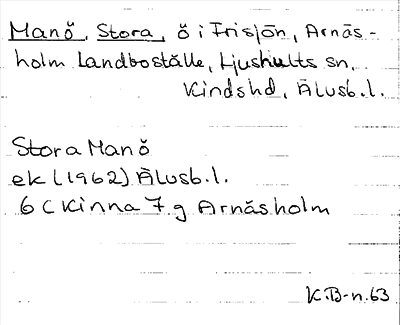 Manö, Stora, ö i Frisjön, Arnäs-
holm Landboställe, Ljushults sn,
Kinds hd, Älvsb. l.
Stora Manö
ek (1962) Älvsb. l.
6 C Kinna 7 g Arnäsholm
K.B-n. 63